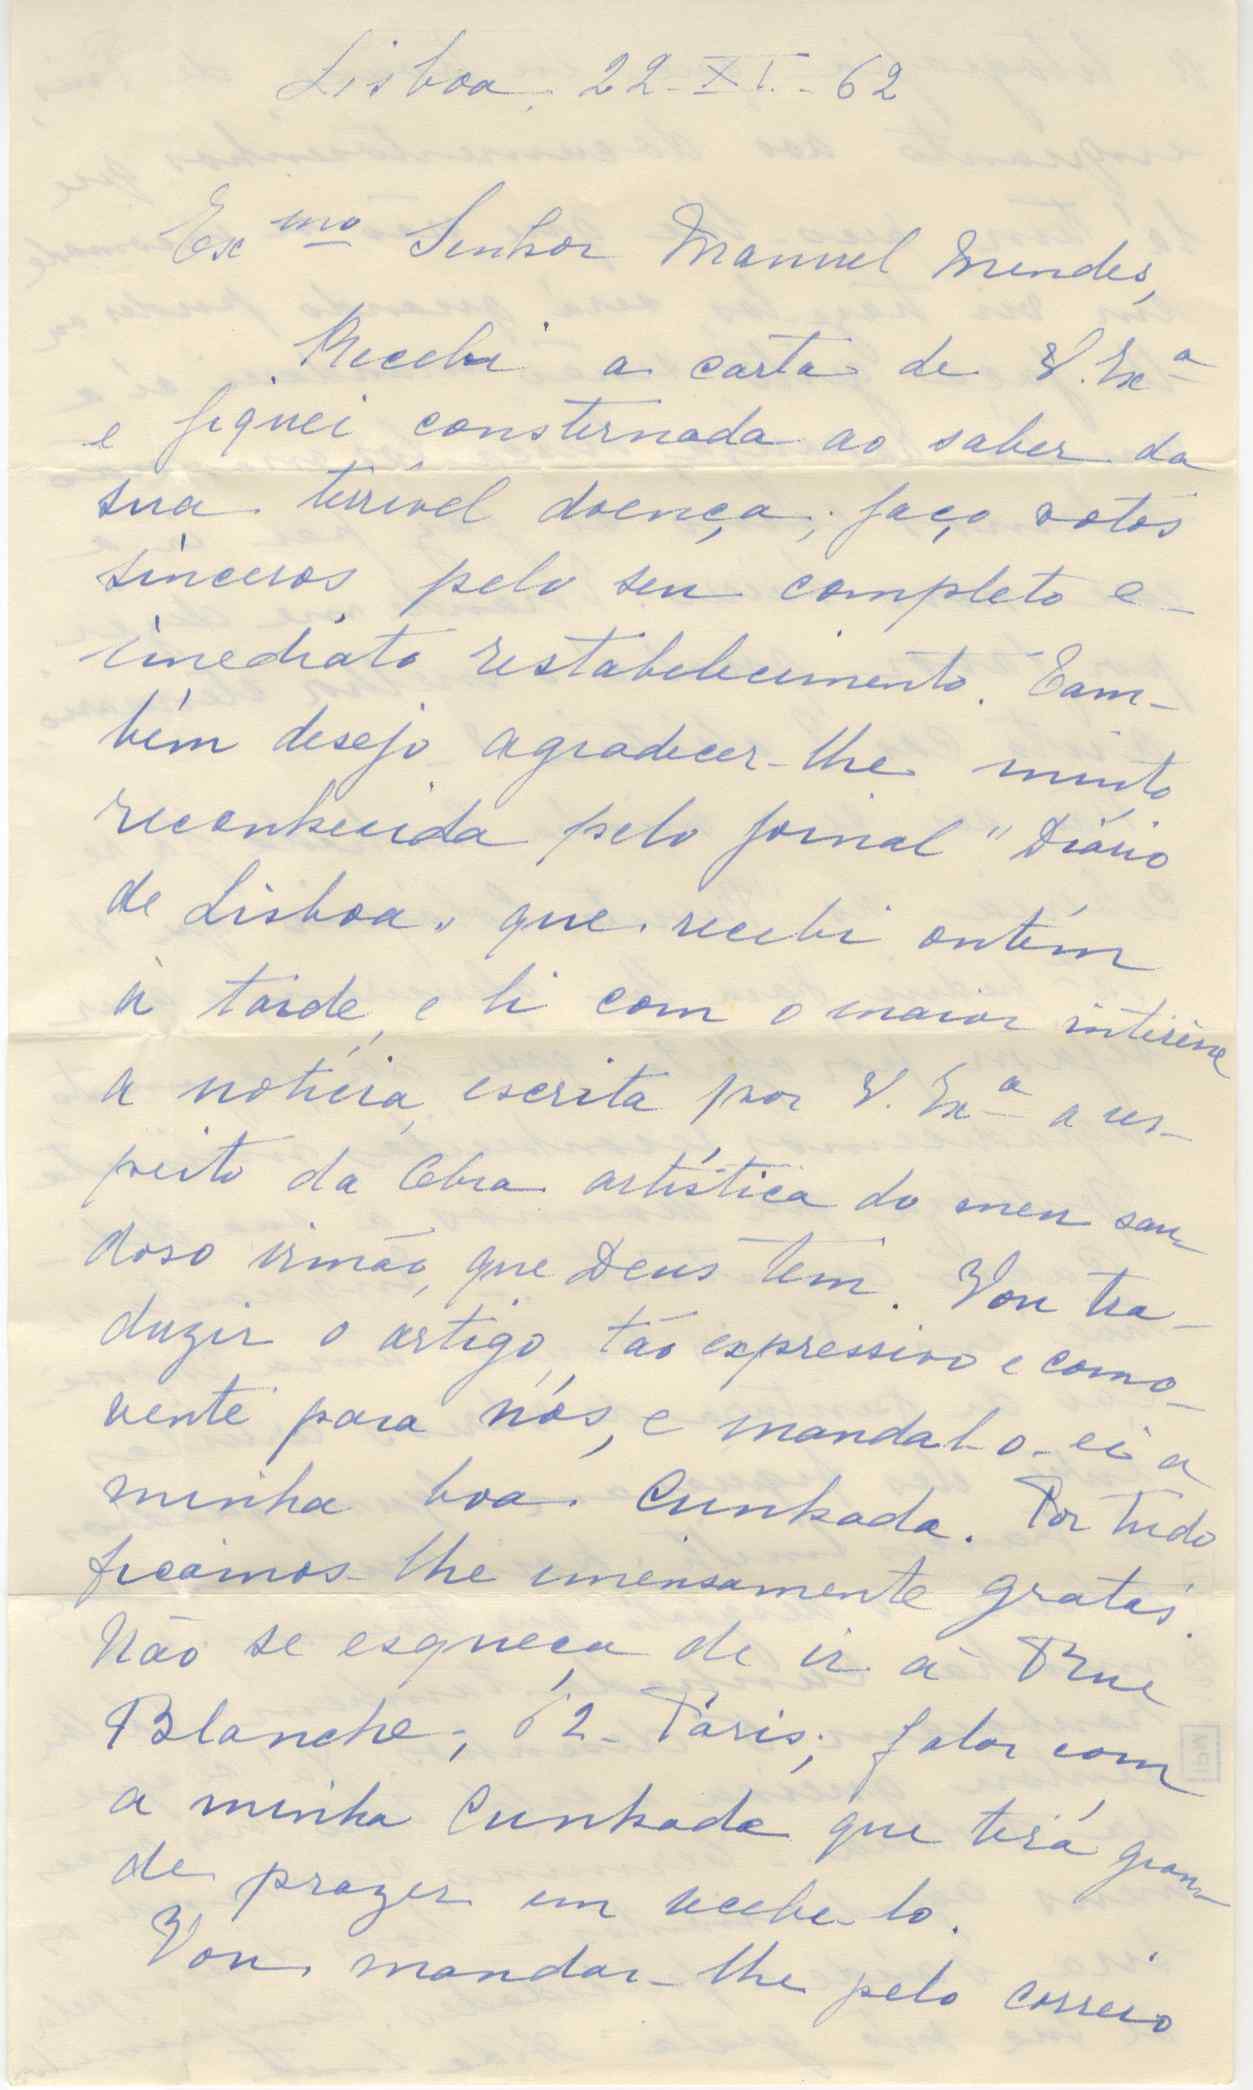 Lisboa, 22-XI.-62
Exmo Senhor Manuel Mendes,
Recebi a carta de V. Exª
e fiquei consternada ao saber da
sua terrível doença; faço votos
sinceros pelo seu completo e
imediato restabelecimento. Tam-
bém desejo agradecer-lhe muito
reconhecida pelo jornal "Diário
de Lisboa" que recebi ontém
à tarde, e li com o maior interêsse
a notícia, escrita por V. Exª a res-
peito da Obra artística do meu sau-
doso irmão, que Deus tem. Vou tra-
duzir o artigo, tão expressivo e como-
vente para nós, e mandal-o-ei a
minha boa Cunhada. Por tudo
ficamos-lhe imensamente gratas.
Não se esqueça de ir à Rue
Blanche, 62-Paris; falar com
a minha Cunhada que terá gran-
de prazer em recebe-lo.
Vou mandar-lhe pelo correio